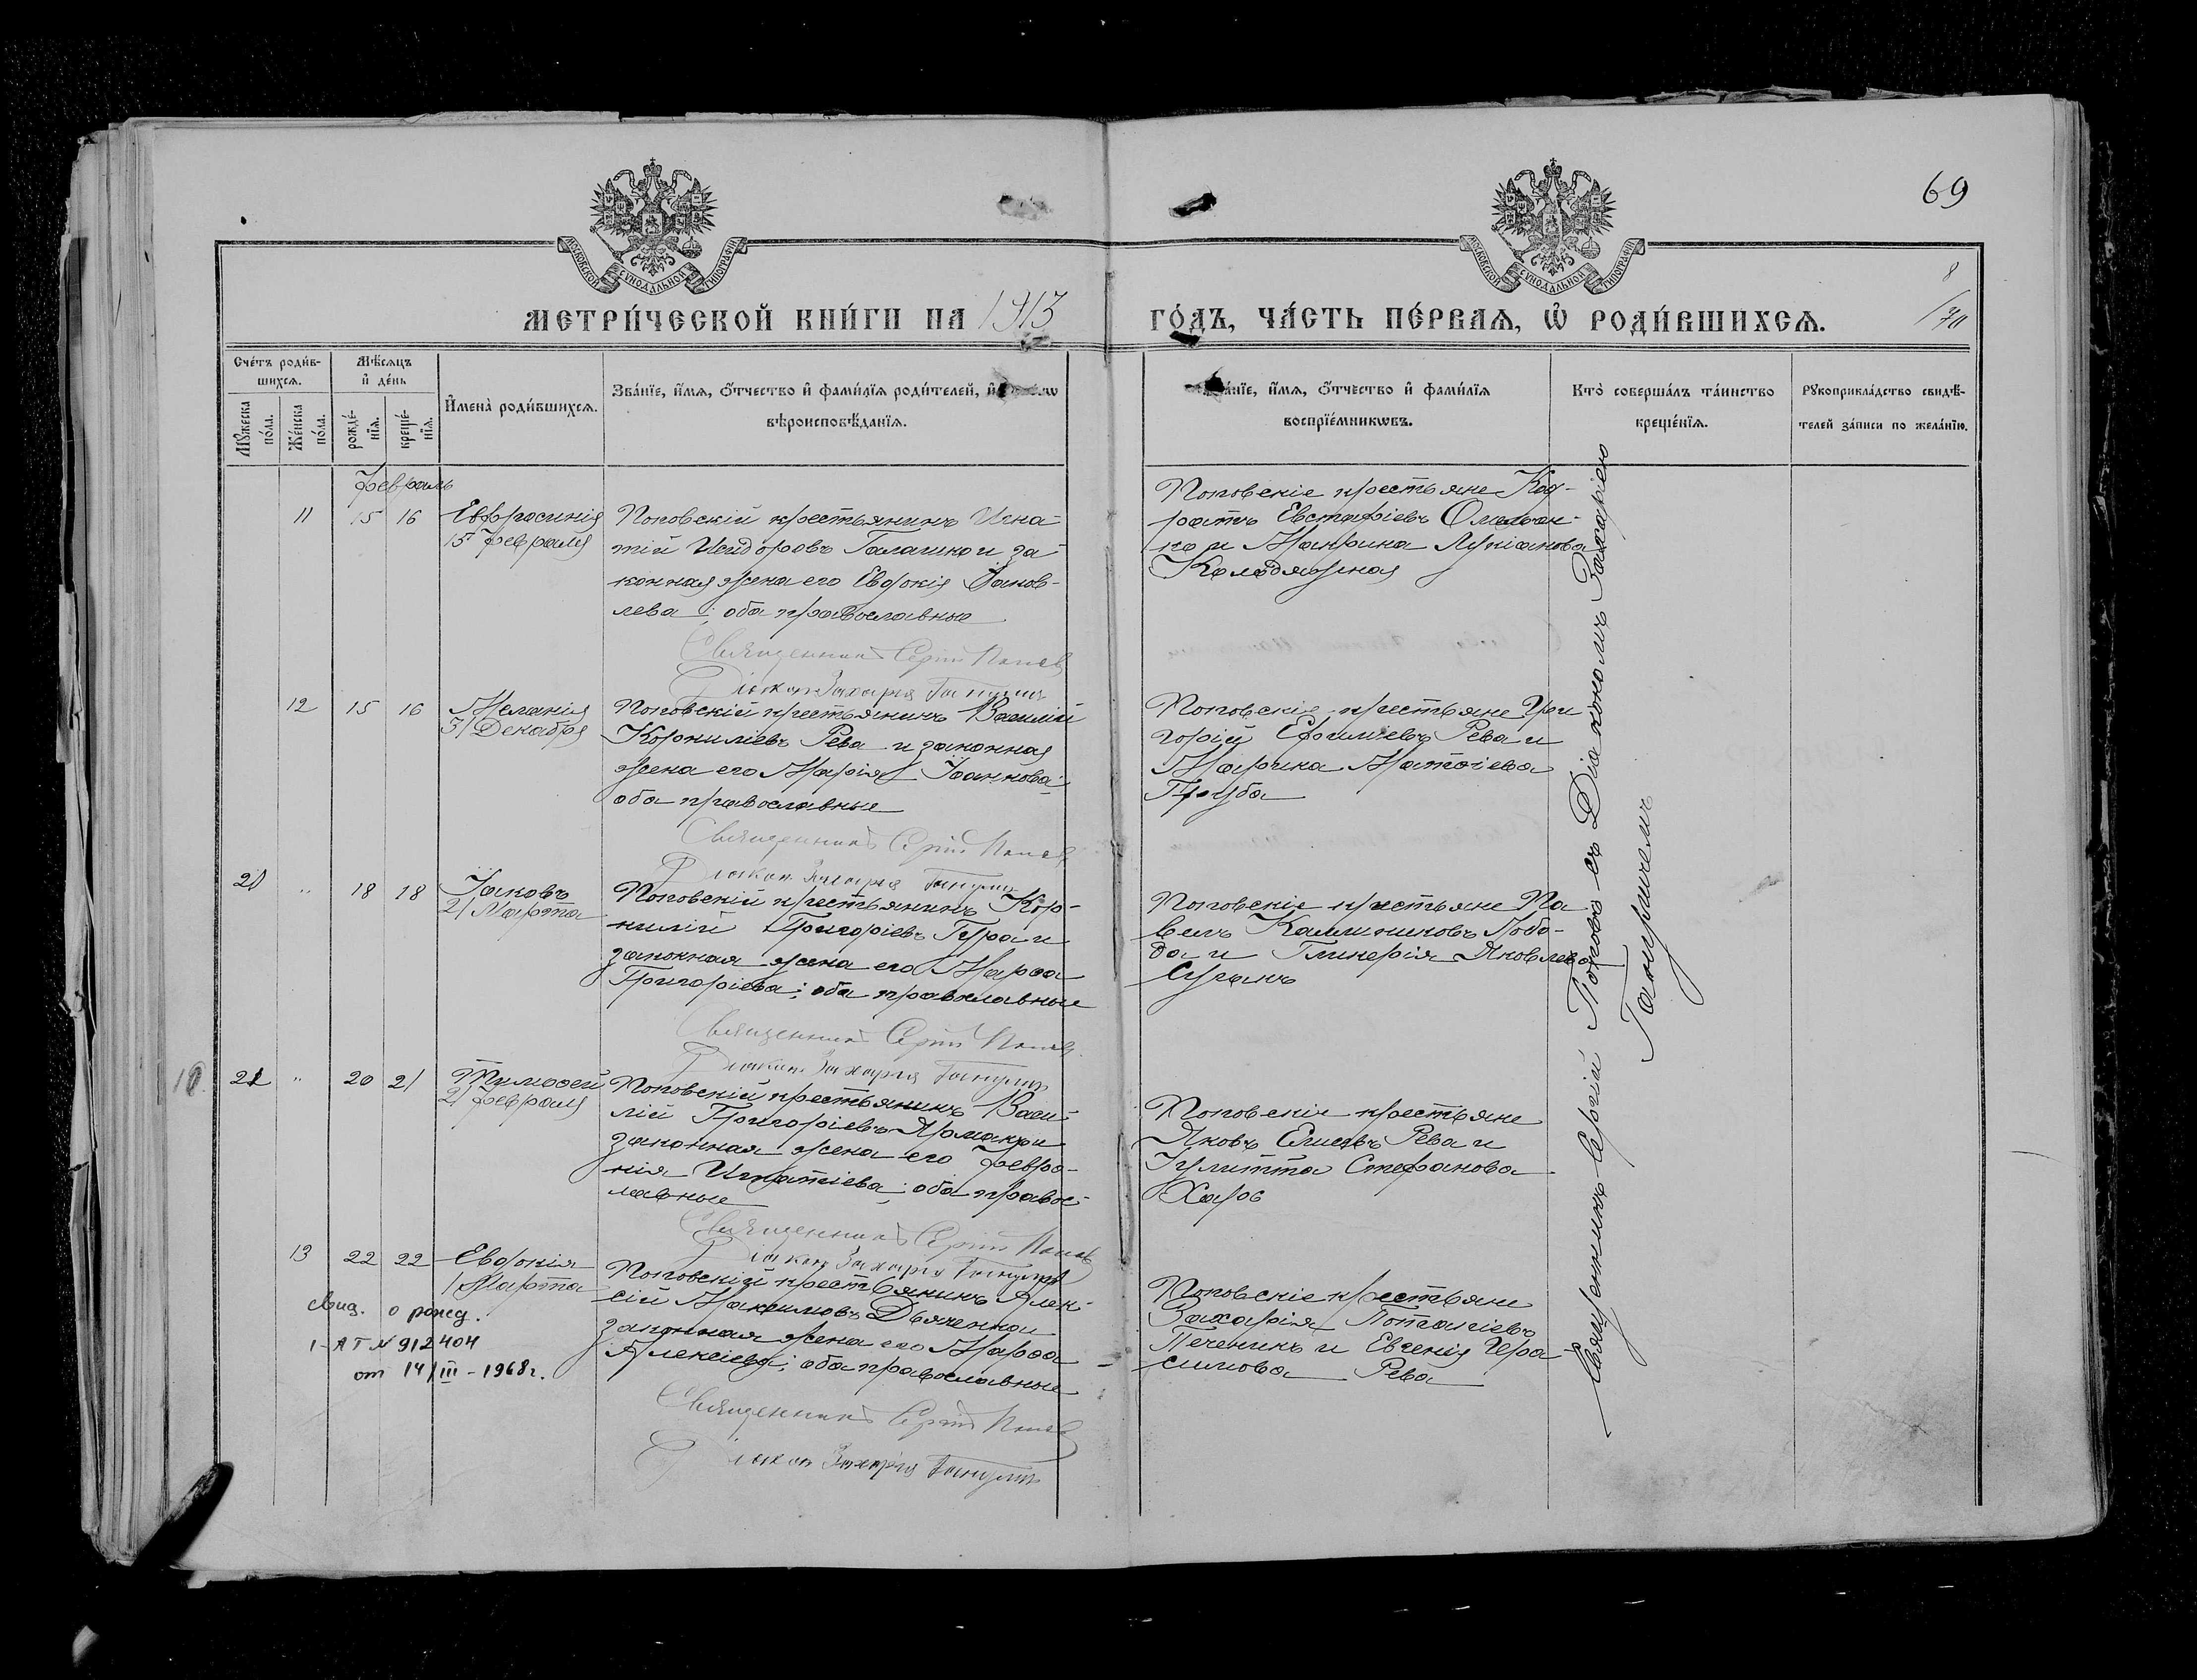 69
МОСКОВСКОЙ СѴНОДАЛЬНОЙ ТИПОГРАФІИ
МОСКОВСКОЙ СѴНОДАЛЬНОЙ ТИПОГРАФІИ
8
/70
МЕТРИ́ЧЕСКОЙ КНИ́ГИ НА 1913
ГО́ДЪ, ЧА́СТЬ ПЕ́РВАѦ, Ѽ РОДИ́ВШИХСѦ.
Сче́тъ роди́в-
шихсѧ.
Мꙋ́жеска по́ла.
Же́нска по́ла.
Мѣ́сѧцъ
и҆ де́нь
рожде́-
нїѧ.
креще́-
нїѧ.
И҆мена̀ роди́вшихсѧ.
Зва́нїе, и҆́мѧ, ѻ҆́тчество и҆ фами́лїѧ роди́телей, и҆
вѣроисповѣ́данїѧ.
Зва́нїе, и҆́мѧ, ѻ҆́тчество и҆ фами́лїѧ
воспрїе́мникѡвъ.
Кто̀ соверша́лъ та́инство
креще́нїѧ.
Рꙋкоприкла́дство свидѣ́-
телей за́писи по жела́нїю.
Февраль
11 15 16 Евфросинія
15 февраля
Поповскій крестьянинъ Игна-
тій Исидоровъ Галашко и за-
конная жена его Евдокія Іаков-
лева; оба православные
Священникъ Сергій Поповъ
Діаконъ Захарія
Поповскіе крестьяне Код-
ратъ Евстафіевъ Омельян-
ко и Макрина Лукіанова
Колодяжная
12 15 16 Меланія
31 Декабря
Поповскій крестьянинъ Василій
Корниліевъ Рева и законная
жена его Марія Іоаннова
оба православные
Священникъ Сергій Поповъ
Діаконъ Захарія
Поповскіе крестьяне Гри
горій Ефиміевъ Рева и
Марина Матѳіева
Груба
20 " 18 18 Іаковъ
21 Марта
Поповскій крестьянинъ Кор-
нилій Григоріевъ Гура и
законная жена его Марѳа
Григоріева; оба православные
Священникъ Сергій Поповъ
Діаконъ Захарія
Поповскіе крестьяне Па
велъ Каллиниковъ Лобо-
да и Гликерія Яковлева
21 " 20 21 Тимоѳей
21 февраля
Поповскій крестьянинъ Васи-
лій Григоріевъ Ярмак и
законная жена его Февро-
нія Игнатіева; оба правос-
лавные
Священникъ Сергій Поповъ
Діаконъ Захарія
Поповскіе крестьяне
Яковъ Рева и
Іулитта Стефанова
13 22 22 Евдокія
1 Марта
Поповскій крестьянинъ Алек-
сій Максимовъ Дьяченко и
законная жена его Марѳа
Алексіева; оба православные
Священникъ Сергій Поповъ
Діаконъ Захарія
Поповскіе крестьяне
Захарія Потапіевъ
Печеникъ и Евгенія Гера-
симова Рева
свид. о рожд.
I-АТ № 912404
от 14/III-1968г.
Священникъ Сергій Поповъ съ Діакономъ Захаріею